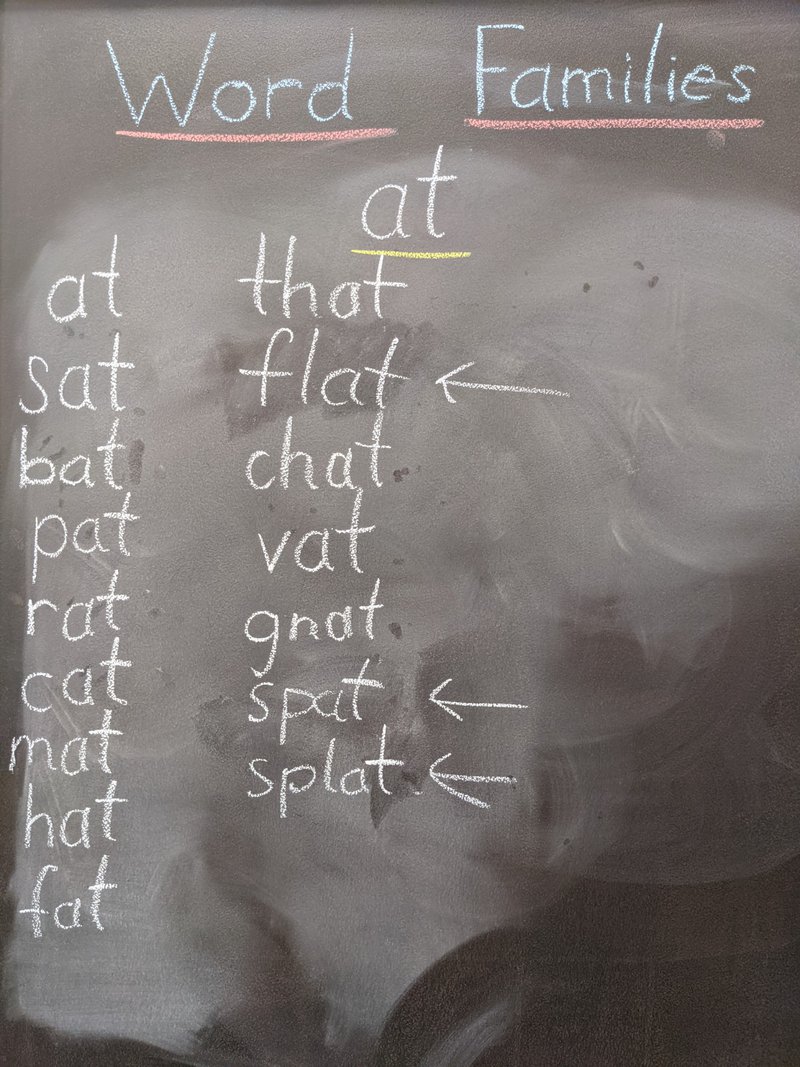 Word Families
at
at
sat
bat
pat
rat
cat
mat
hat
fat
that
flat
chat
vat
gnat
spat
splat